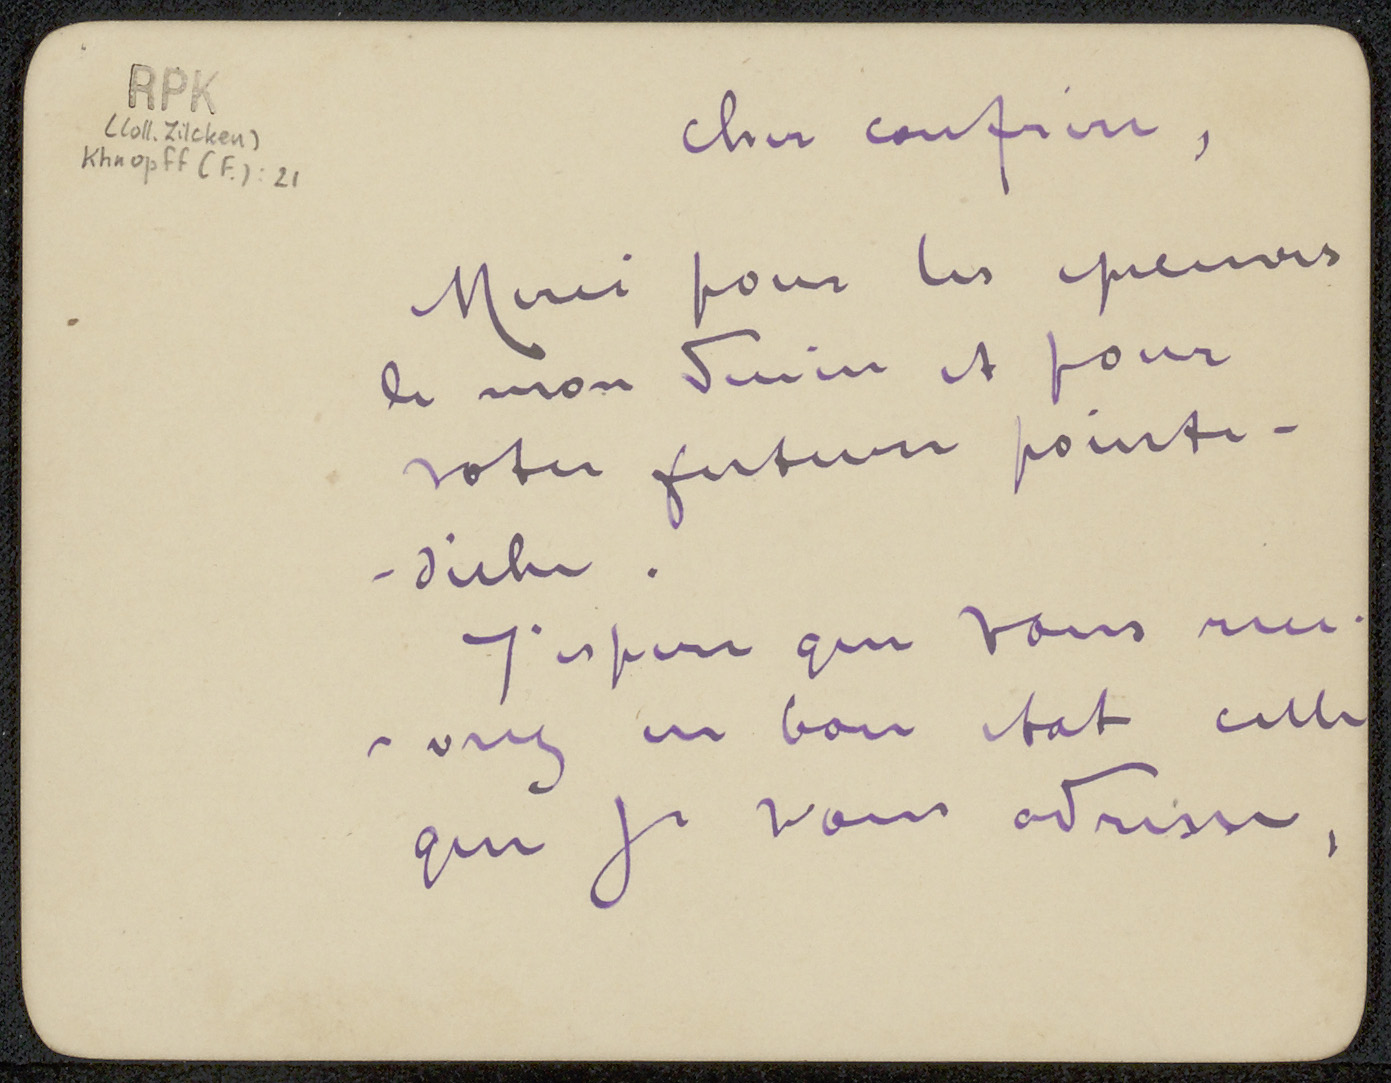 RPK
(Coll. Zilcken)
Khnopff (F.): 21
cher confrère,
Merci pour les epreuves
de mon dessin et pour
votre future pointe-
-sèche.
J'espere que vous rece-
-vrez en bon etat celle
que je vous adresse,